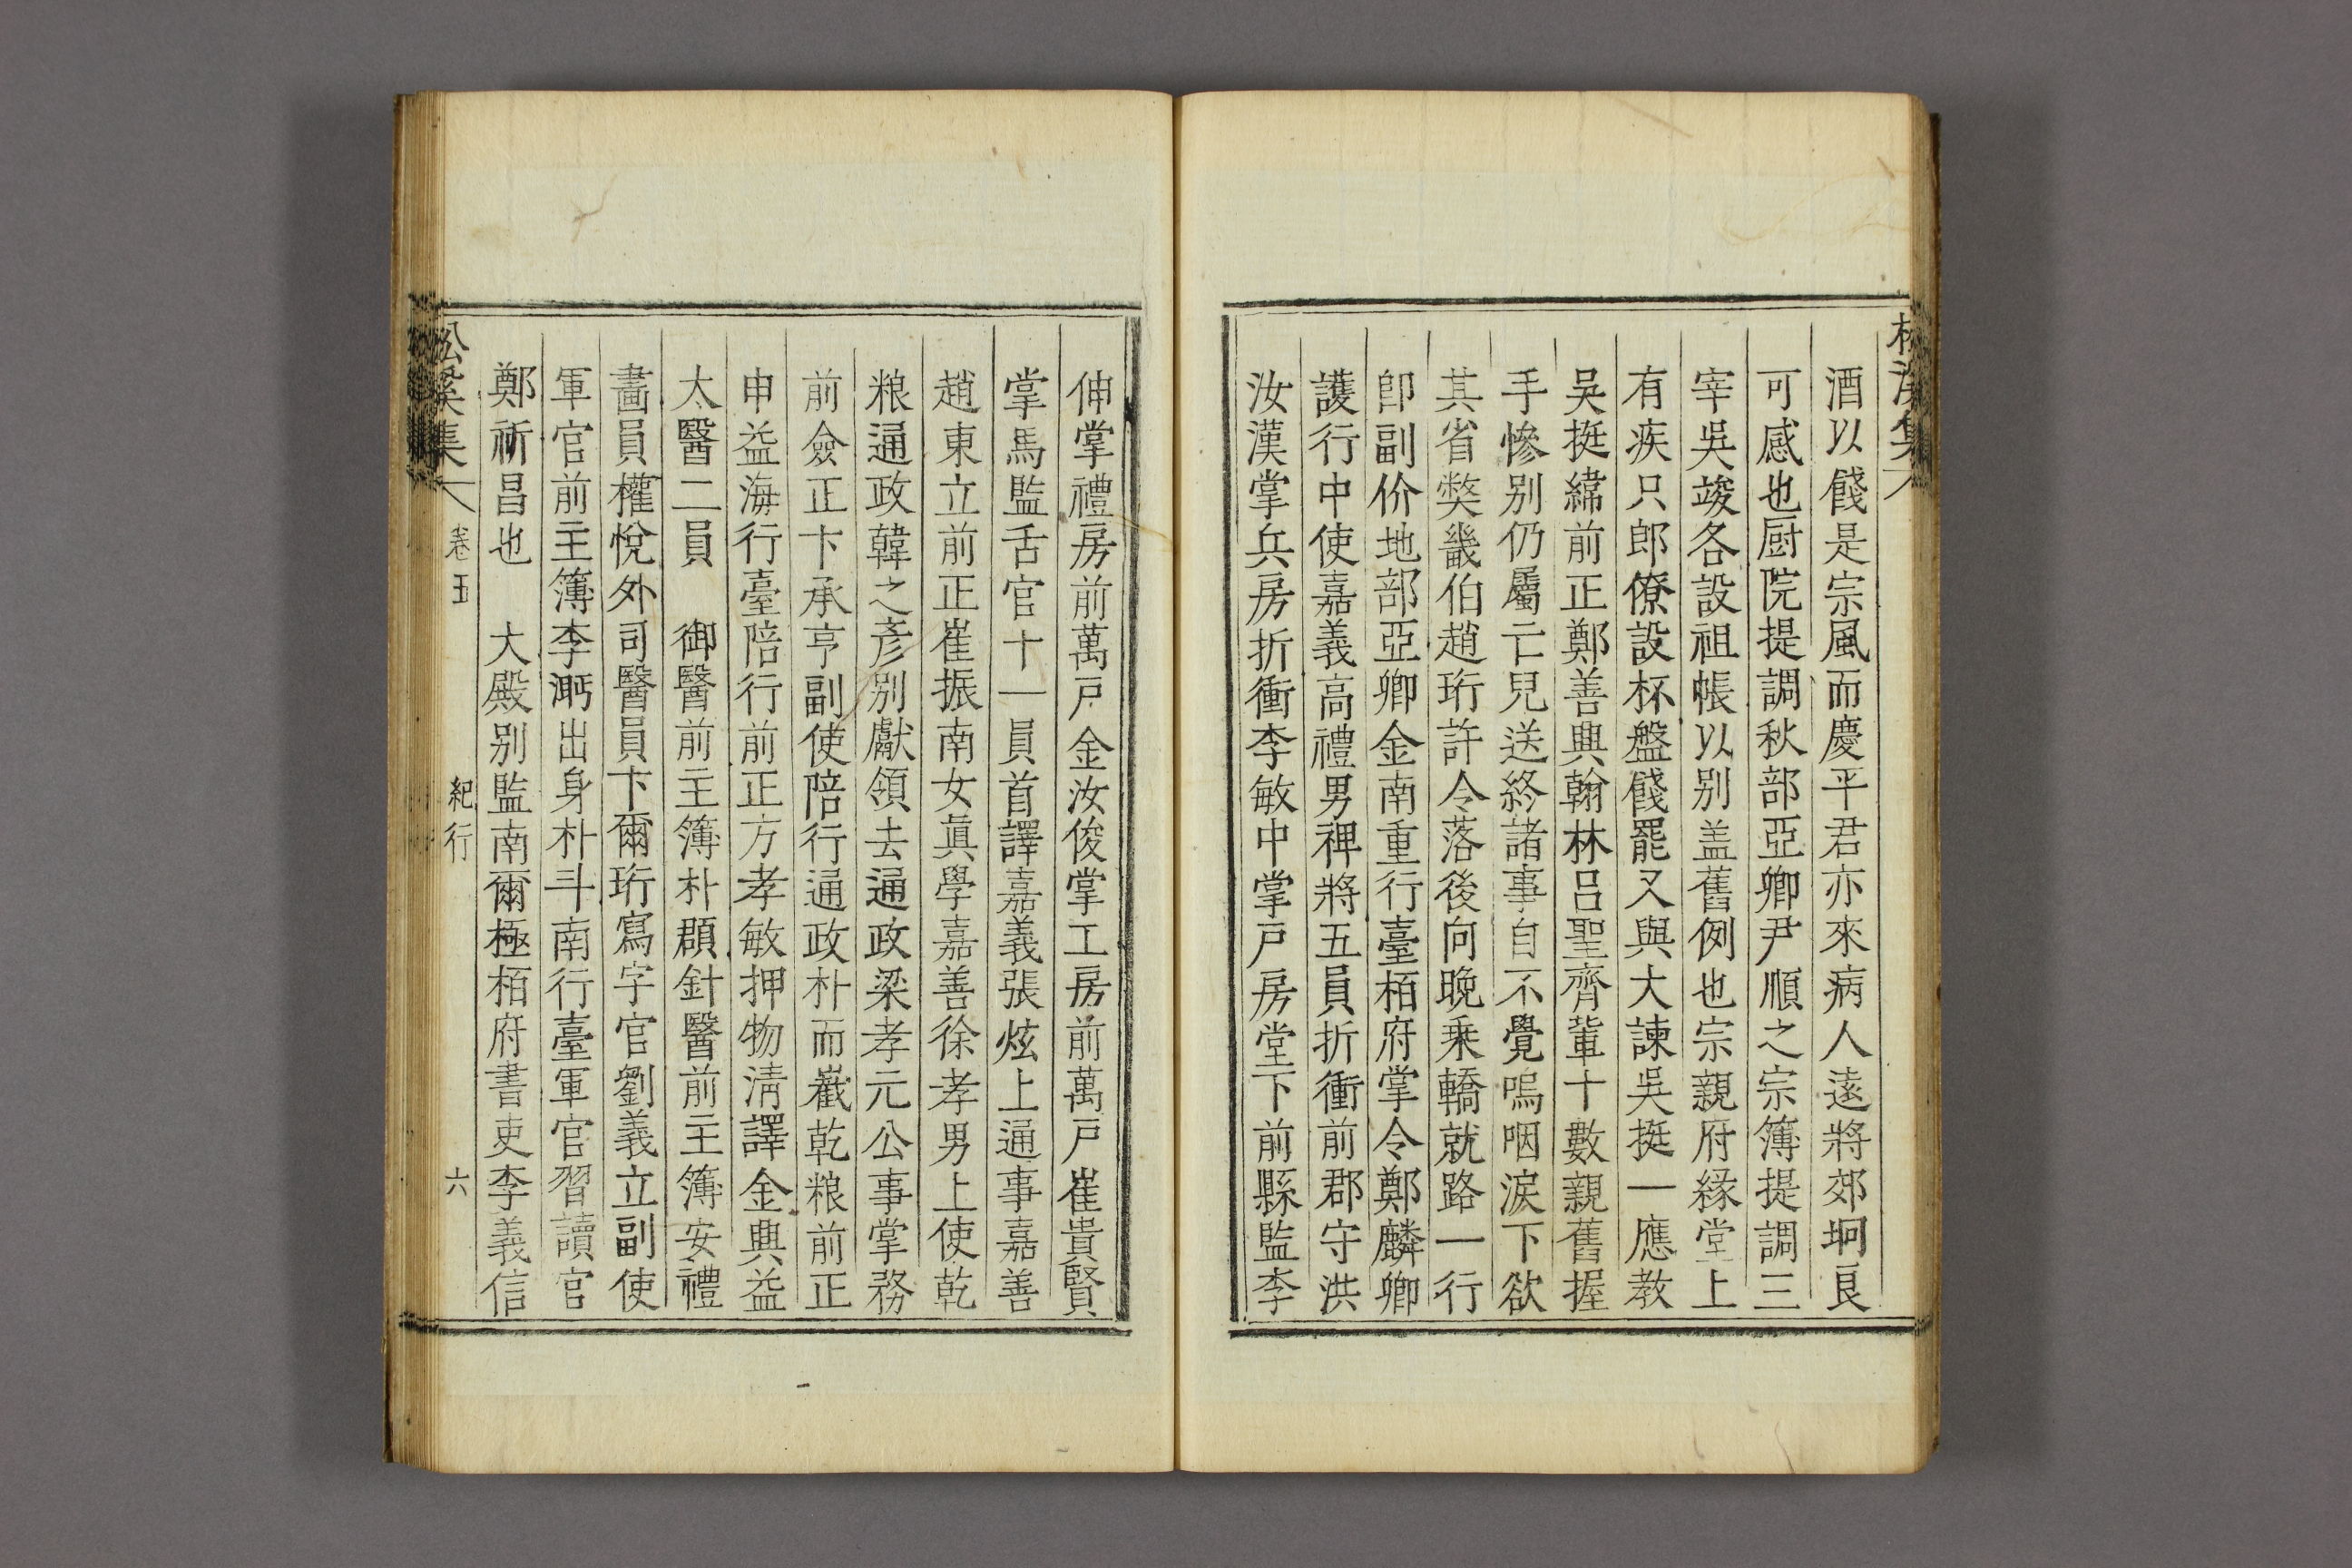 松溪集
酒以餞是宗風而慶平君亦來病人遠將郊坰良
可感也厨院提調秋部亞卿尹順之宗簿提調三
宰吳竣各設祖帳以別盖舊例也宗親府緣堂上
有疾只郎僚設杯盤餞罷又與大諫吳挺一應教
吳挺緯前正鄭善興翰林呂聖齊軰十數親舊握
手慘別仍屬亡兒送終諸事自不覺嗚咽淚下欲
其省獘畿伯趙珩許令落後向晚乘轎就路一行
卽副价地部亞卿金南重行臺栢府掌令鄭麟卿
護行中使嘉義高禮男裨將五員折衝前郡守洪
汝漢掌兵房折衝李敏中掌戶房堂下前縣監李
伸掌禮房前萬戶金汝俊掌工房前萬戶崔貴賢
掌馬監舌官十一員首譯嘉義張炫上通事嘉善
趙東立前正崔振南女眞學嘉善徐孝男上使乾
粮通政韓之彦別獻領去通政梁孝元公事掌務
前僉正卞承亨副使陪行通政朴而巀乾粮前正
申益海行臺陪行前正方孝敏押物淸譯金興益
太醫二員 御醫前主簿朴頵針醫前主簿安禮
畵員權悅外司醫員卞爾珩寫字官劉義立副使
軍官前主簿李溮出身朴斗南行臺軍官習讀官
鄭祈昌也 大殿別監南爾極栢府書吏李義信
松溪集 卷五 紀行 六